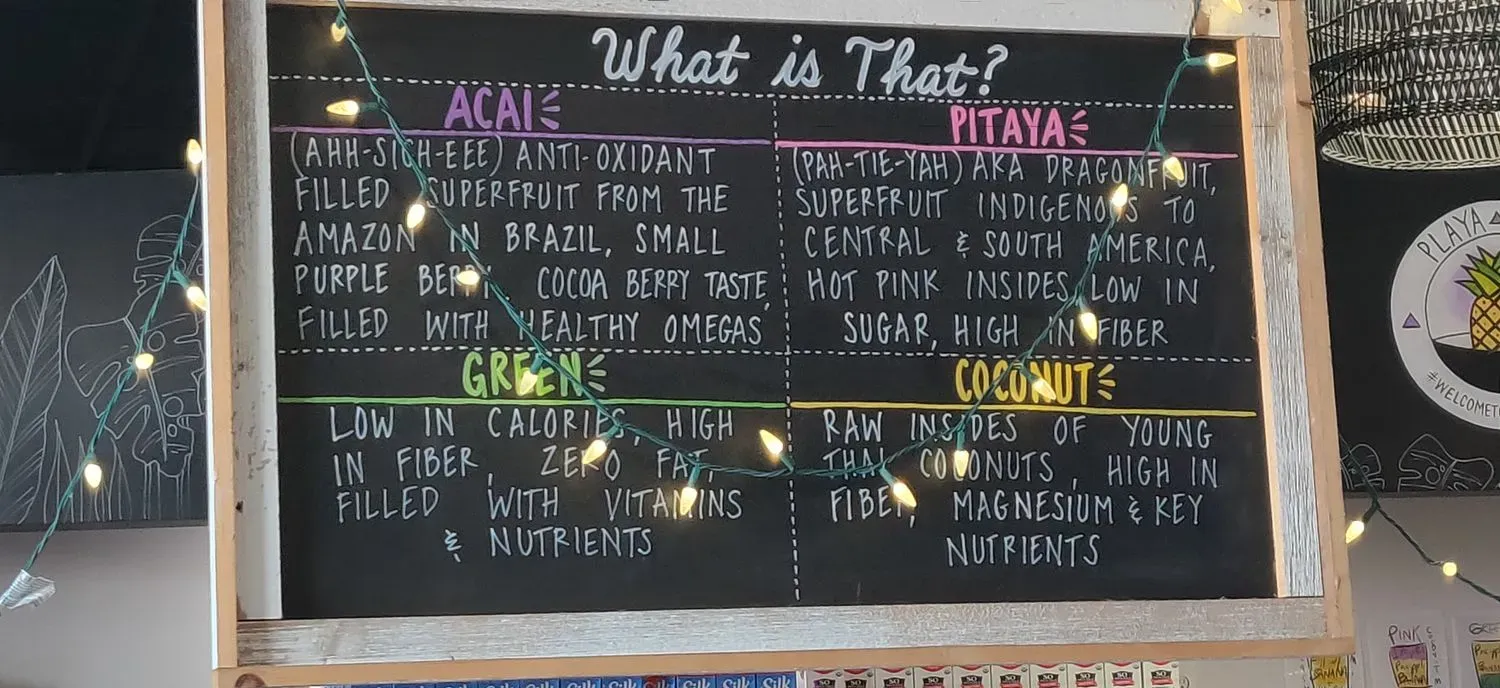 What is That?
ACAI
(AHH-SIGH-EEE) ANTI-OXIDANT
FILLED SUPERFRUIT FROM THE
AMAZON IN BRAZIL, SMALL
PURPLE BERRY. COCOA BERRY TASTE,
FILLED WITH HEALTHY OMEGAS
PITAYA
(PAH-TIE-YAH) AKA DRAGONFRUIT,
SUPERFRUIT INDIGENOUS TO
CENTRAL & SOUTH AMERICA,
HOT PINK INSIDES, LOW IN
SUGAR, HIGH IN FIBER
GREEN
LOW IN CALORIES, HIGH
IN FIBER, ZERO FAT,
FILLED WITH VITAMINS
& NUTRIENTS
COCONUT
RAW INSIDES OF YOUNG
THAI COCONUTS, HIGH IN
FIBER, MAGNESIUM & KEY
NUTRIENTS
PLAYA
#WELCOMET
PINK
Silk Silk Silk Silk Silk Silk Silk
SO SO SO SO SO SO SO SO